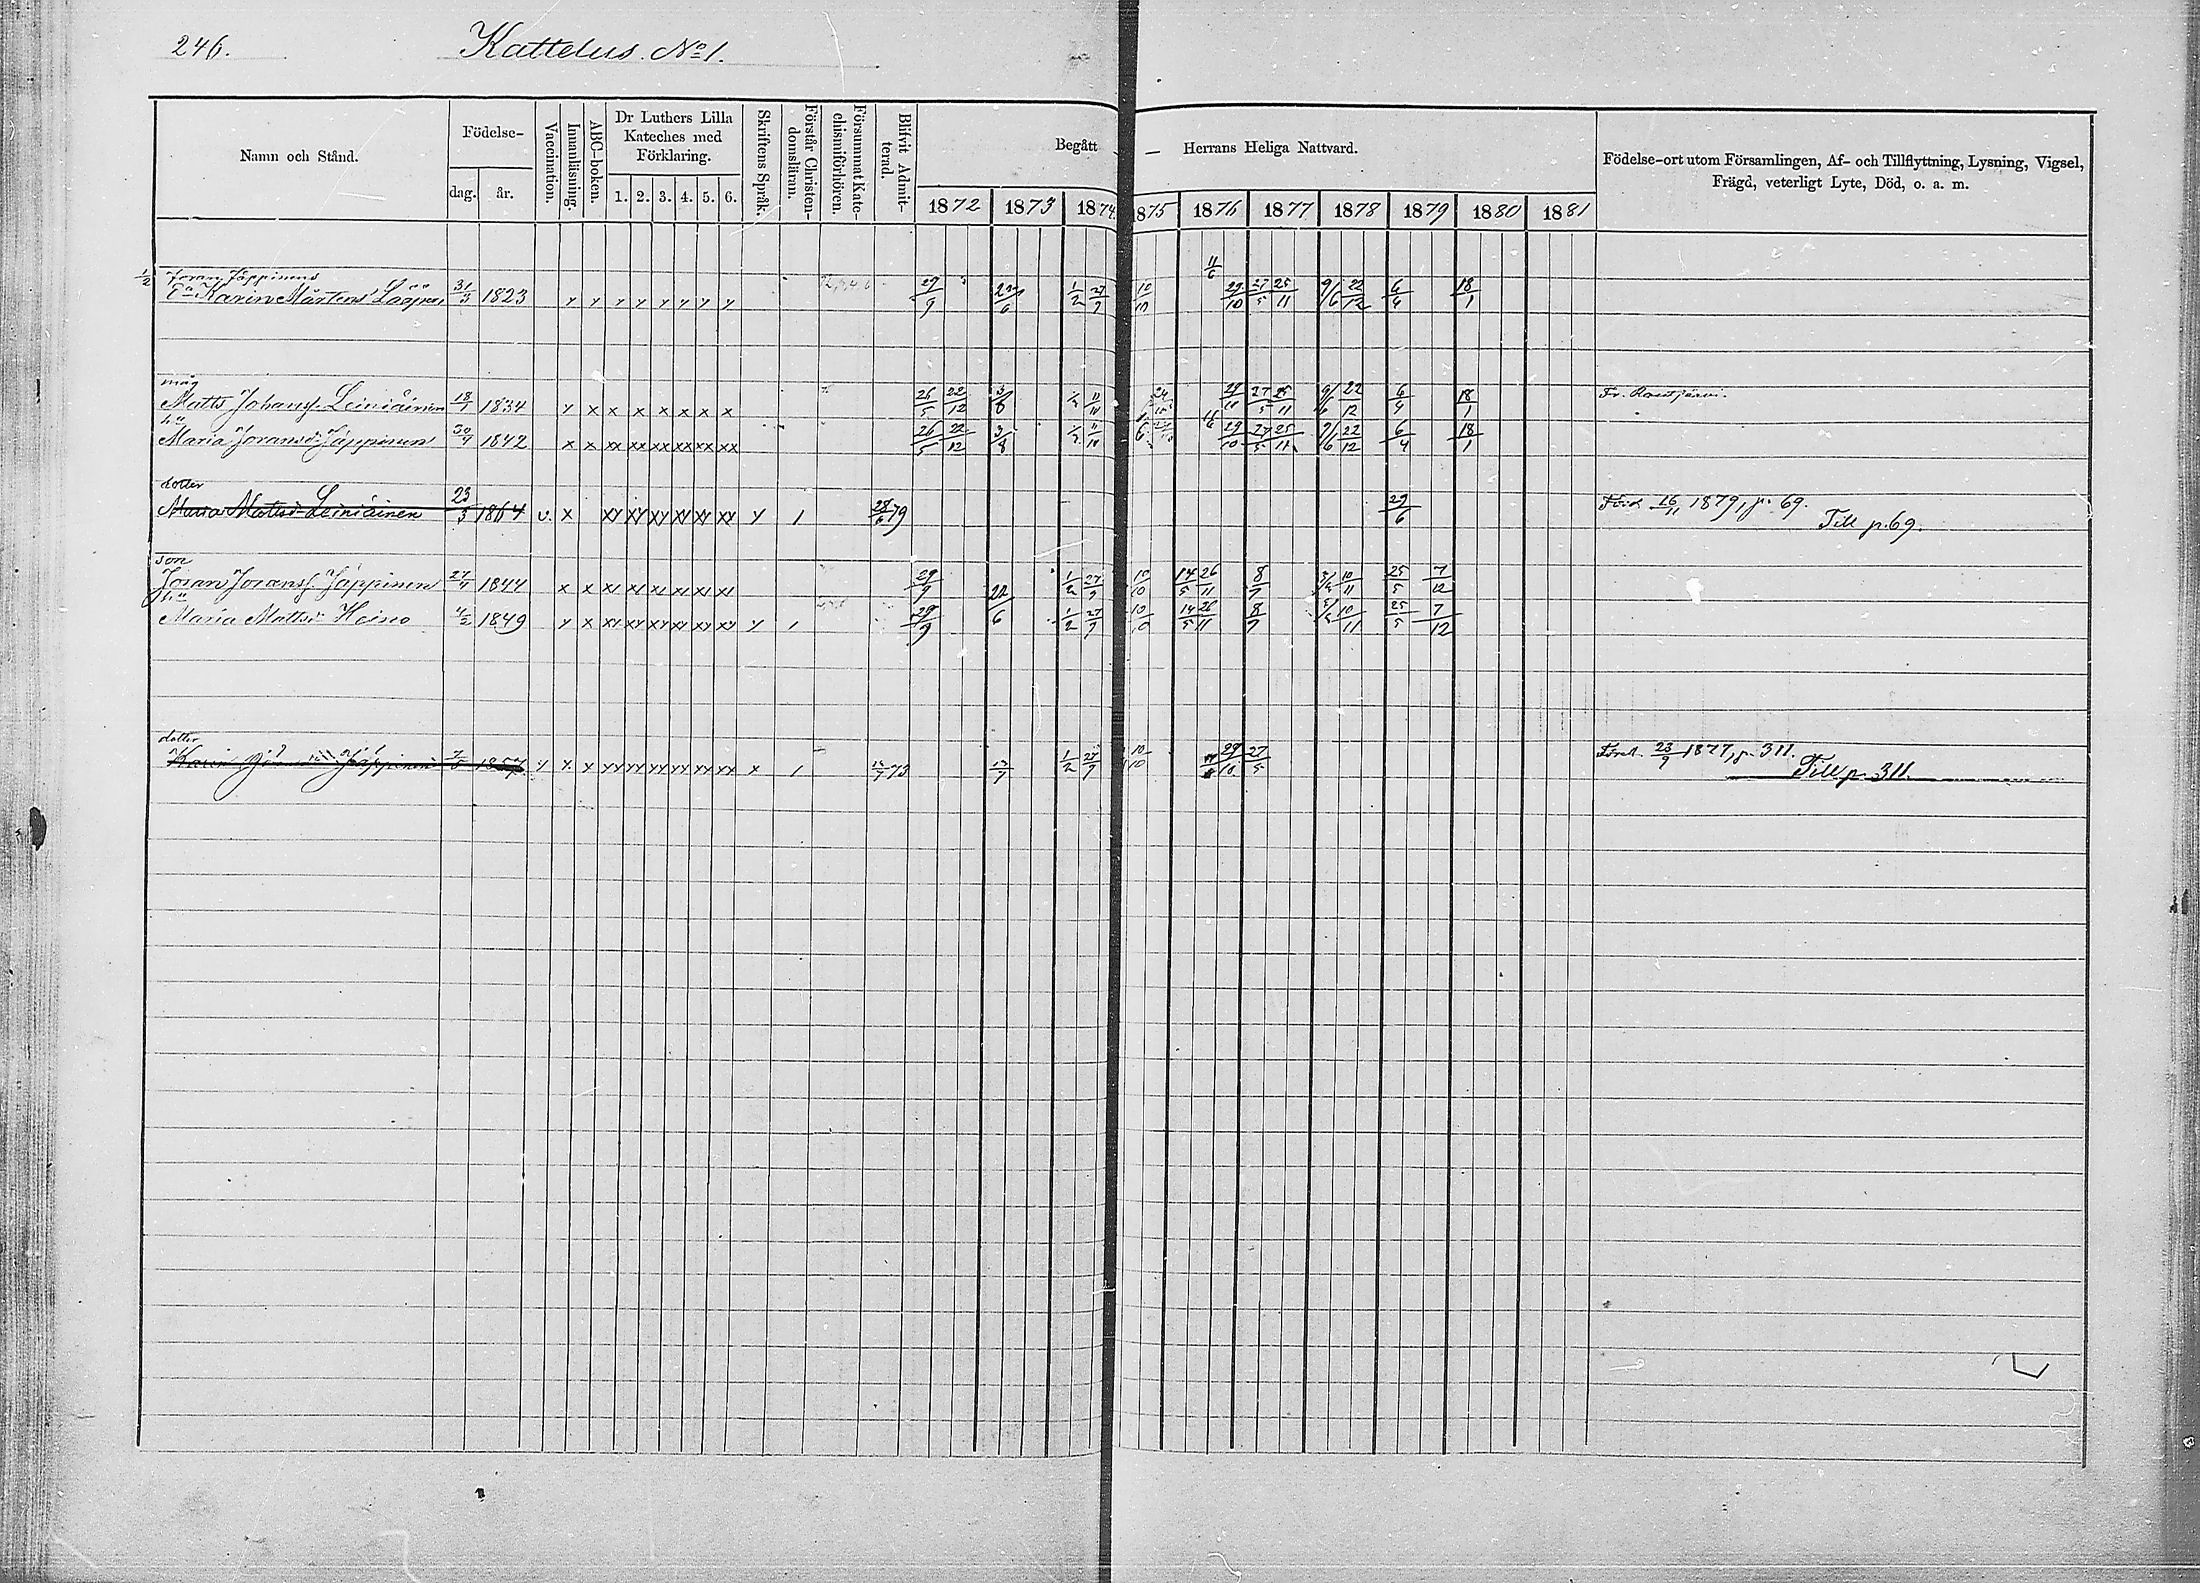 246. Kattelus. No 1.
Namn och Stånd.
Födelse-
dag. år.
Vaccination.
Innanläsning.
ABC-boken.
Dr Luthers Lilla
Kateches med
Förklaring.
1. 2. 3. 4. 5. 6.
Skriftens Språk.
Förstår Christen-
domsläran.
Försummat Kate-
chismiförhören.
Blifvit Admit-
terad.
Begått — Herrans Heliga Nattvard.
1872 1873 1874 1875 1876 1877 1878 1879 1880 1881
Födelse-ort utom Församlingen, Af- och Tillflyttning, Lysning, Vigsel,
Frägd, veterligt Lyte, Död, o. a. m.
11/6
1/2 Joran Jäppinens
Karin Mårtens 31/3 1823 y y y y y y y y 29/9 1/2 27/9 10/10 29/10 27/5 25/11 9/6 22/12 6/4 18/1
måg
Matts Johanss. Leiniäinen 18/1 1834 y x x x x x x x 26/5 22/12 3/8 1/2 11/10 27/5 25/11 9/6 22/12 6/4 18/1
hu
Maria Joransd. Jäppinen 30/9 1842 x x xx xx xx xx xx xx 26/5 22/12 3/8 1/2 11/10 11/6 29/10 27/5 25/11 9/6 22/12 6/4 18/1
dotter
Maria Matsd. Leiniäinen 23/3 1864 v. x xy xy xy xy xy xy y 1 28/6 79 29/6 1879, p. 69.
Till p. 69.
son
Joran Joranss. Jäppinen 27/4 1844 x x xx xx xx xx xx xx 29/9 22/6 1/2 27/9 10/10 14/5 26/11 8/7 10/11 25/5 7/12
hu
Maria Mattsd. Heino 1849 y x xy xy xy xy xy xy y 1 29/9 1/2 27/9 10/10 14/5 26/11 8/7 10/11 25/5 7/12
dotter
Karin Jäppinen 1857 y x x xy xy xy xy xy xy x 1 73 1/2 27/9 10/10 29/10 27/5 23/9 1877, p. 311.
Till p. 311.